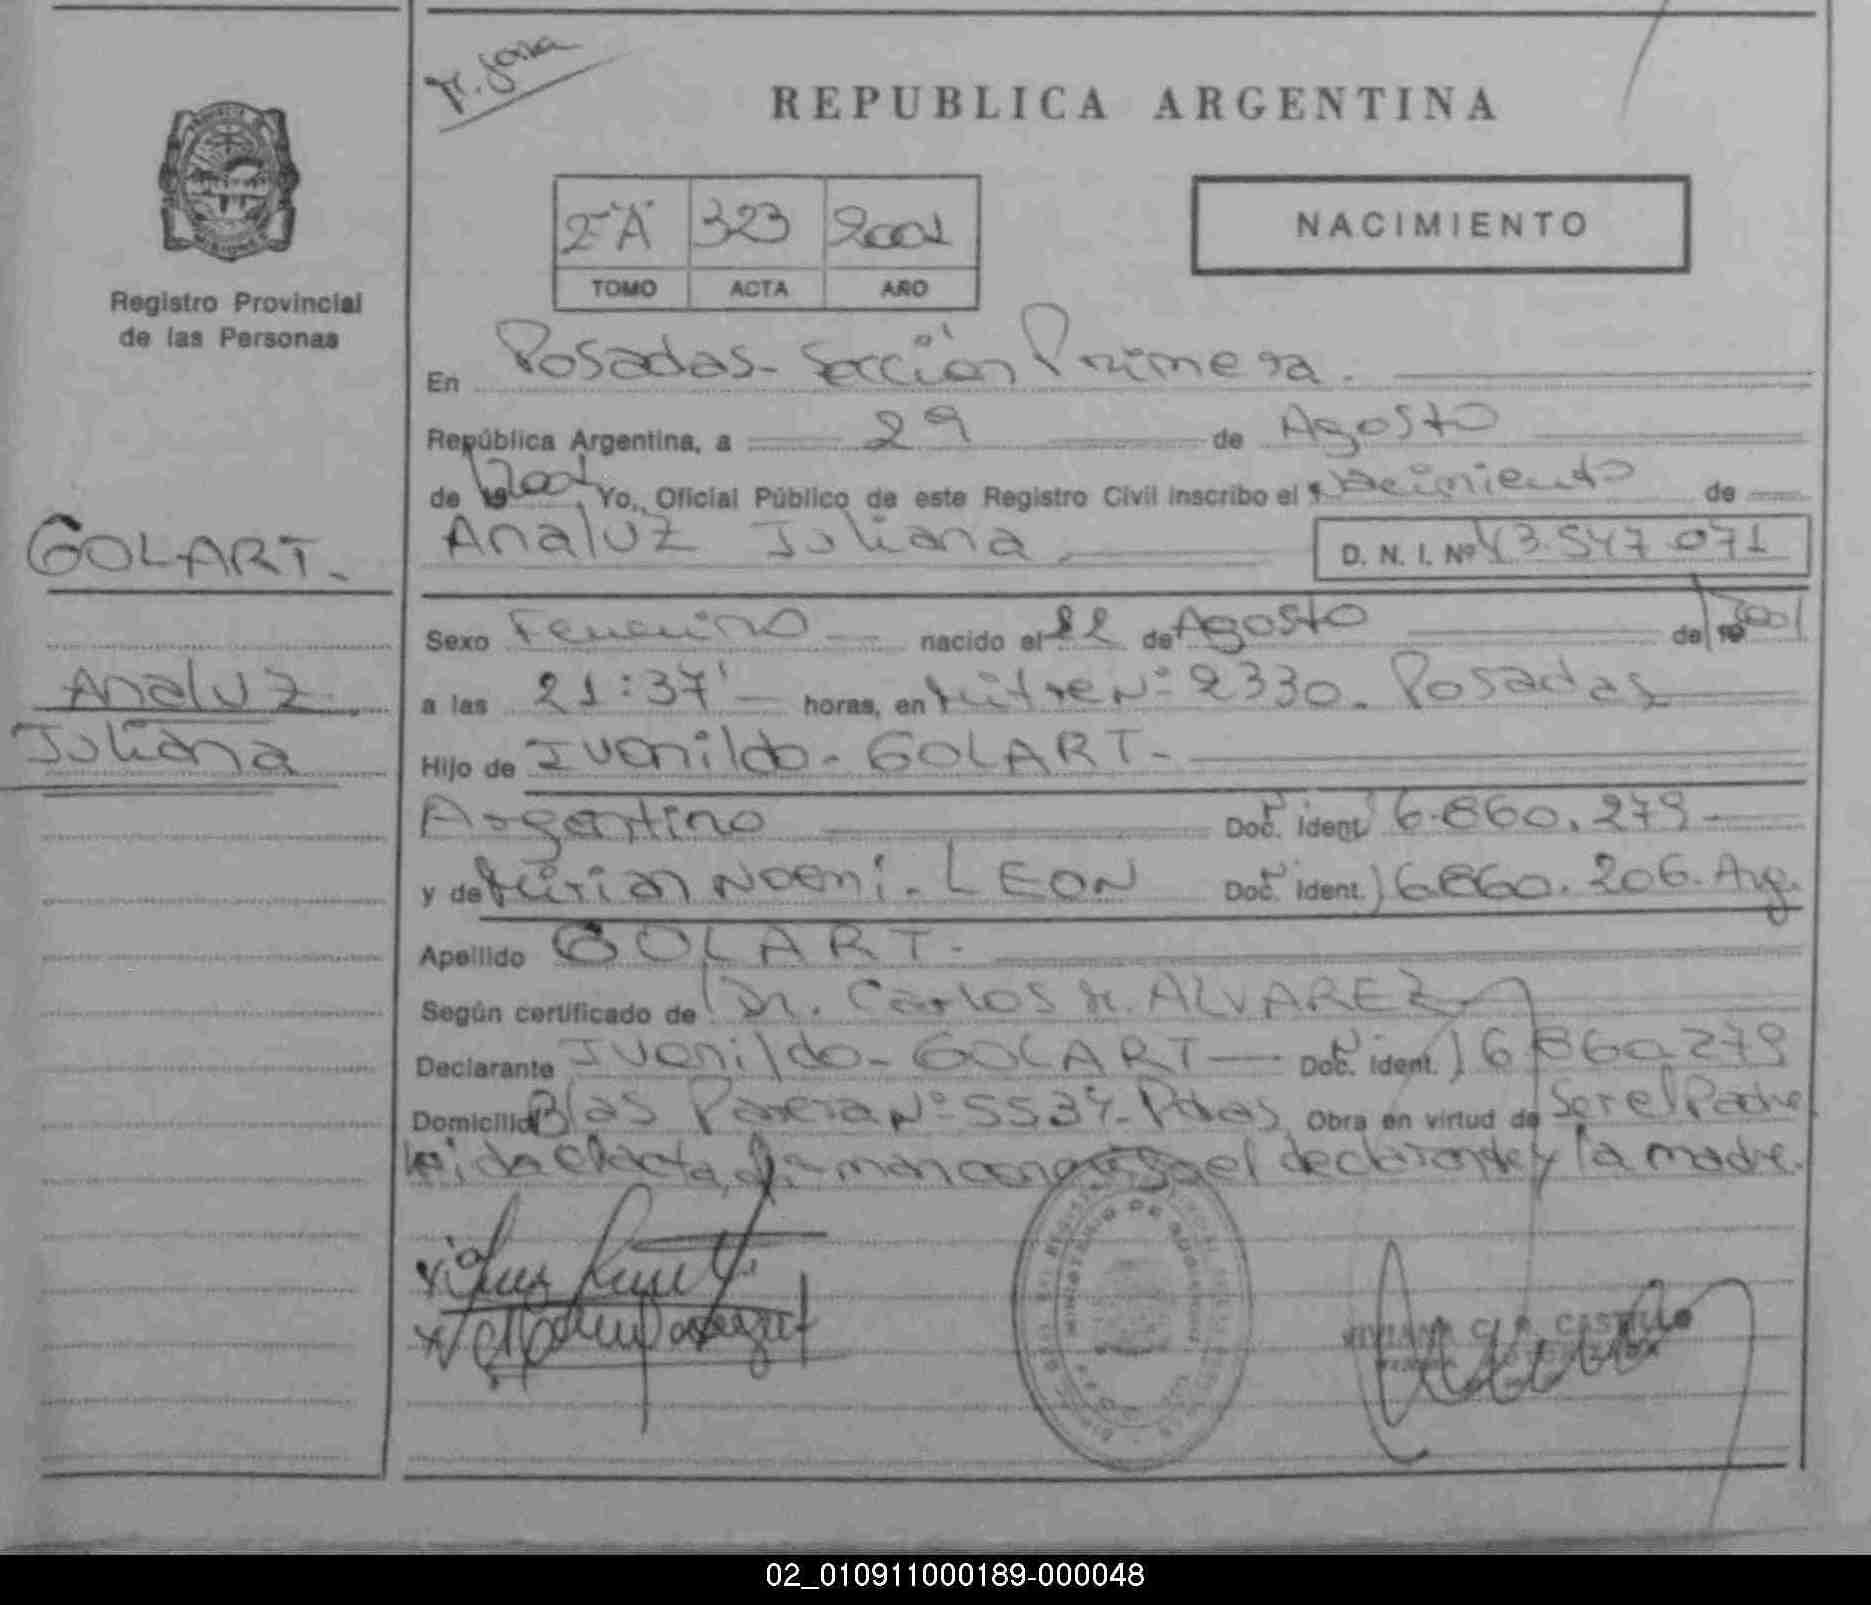 REPUBLICA ARGENTINA
2º "A" 323 2001
TOMO ACTA AÑO
NACIMIENTO
Registro Provincial
de las Personas
En Posadas - Sección Primera.
República Argentina, a 29 de Agosto
de 2001 Yo, Oficial Público de este Registro Civil inscribo el Nacimiento de
Analuz Juliana D. N. I. Nº 43.547.071
GOLART.
Analuz
Juliana
Sexo Femenino nacido el 22 de Agosto de 2001
a las 21:37' horas, en Mitre Nº 2330. Posadas
Hijo de Ivonildo - GOLART -
Argentino Doc. Ident. 16.860.279
y de Mirian Noemi. LEON Doc. Ident. 16.860.206. Arg.
Apellido GOLART.
Según certificado de Dr. Carlos ALVAREZ
Declarante Ivonildo - GOLART Doc. Ident. 16.860.279
Domicilio Blas Parera Nº 5534 - Pdas Obra en virtud de Ser el Padre
Leida el acta, firman conmigo el declarante y la madre.
VIVIANA C. R. CASTILLO
02_010911000189-000048